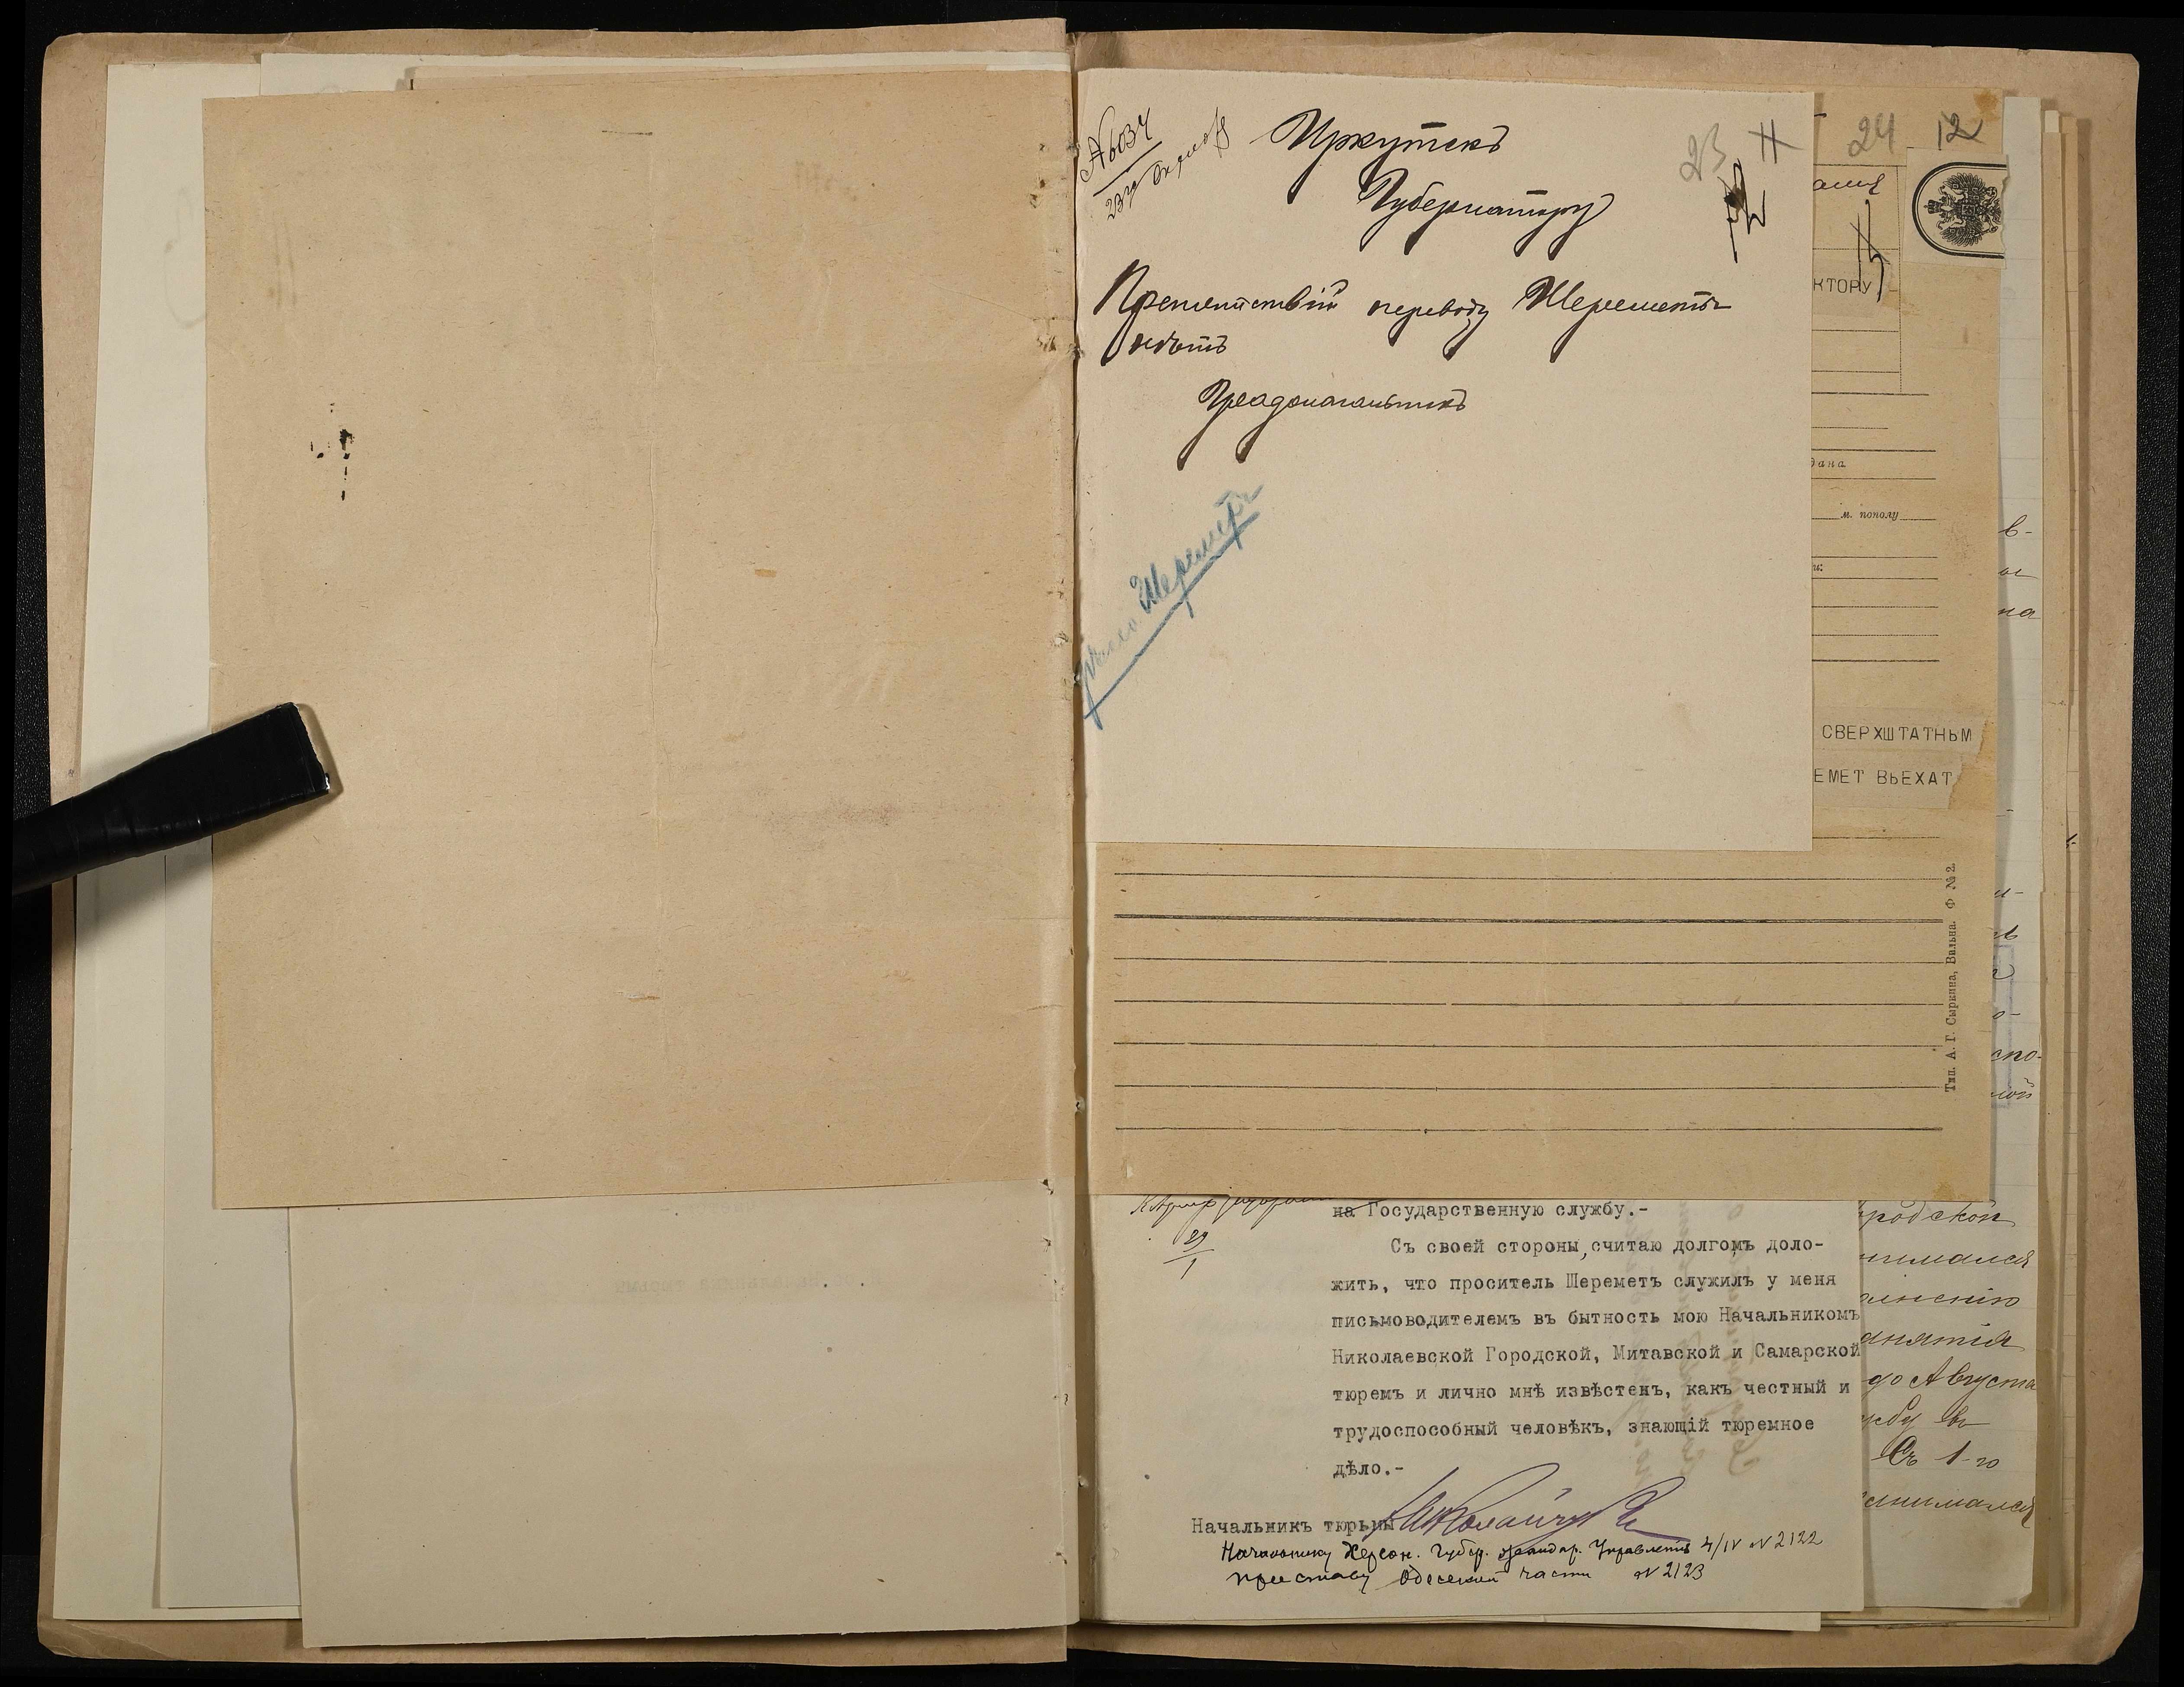 № 6034
Иркутскъ
23
11
Губернатору
Препятствій переводу Шеремета
нѣтъ
Градоначальникъ
Шеремета
24
12
КТОРУ
дана
м. пополу
СВЕРХШТАТНЬМ
ЕМЕТ ВЬЕХАТ
Тип. А. Г. Сыркина, Вильна. Ф № 2.
на Государственную службу.-
29
1
Съ своей стороны, считаю долгомъ доло-
жить, что проситель Шереметъ служилъ у меня
письмоводителемъ въ бытность мою Начальникомъ
Николаевской Городской, Митавской и Самарской
тюремъ и лично мнѣ извѣстенъ, какъ честный и
трудоспособный человѣкъ, знающій тюремное
дѣло.-
Начальникъ тюрьмы
Начальнику Херсон. Губер. жандар. Управленія 4/IV № 2122
приставу Одесской части № 2123
в-
на
спо-
родской
нимался
анятія
до Августа
Съ 1-го
анимался